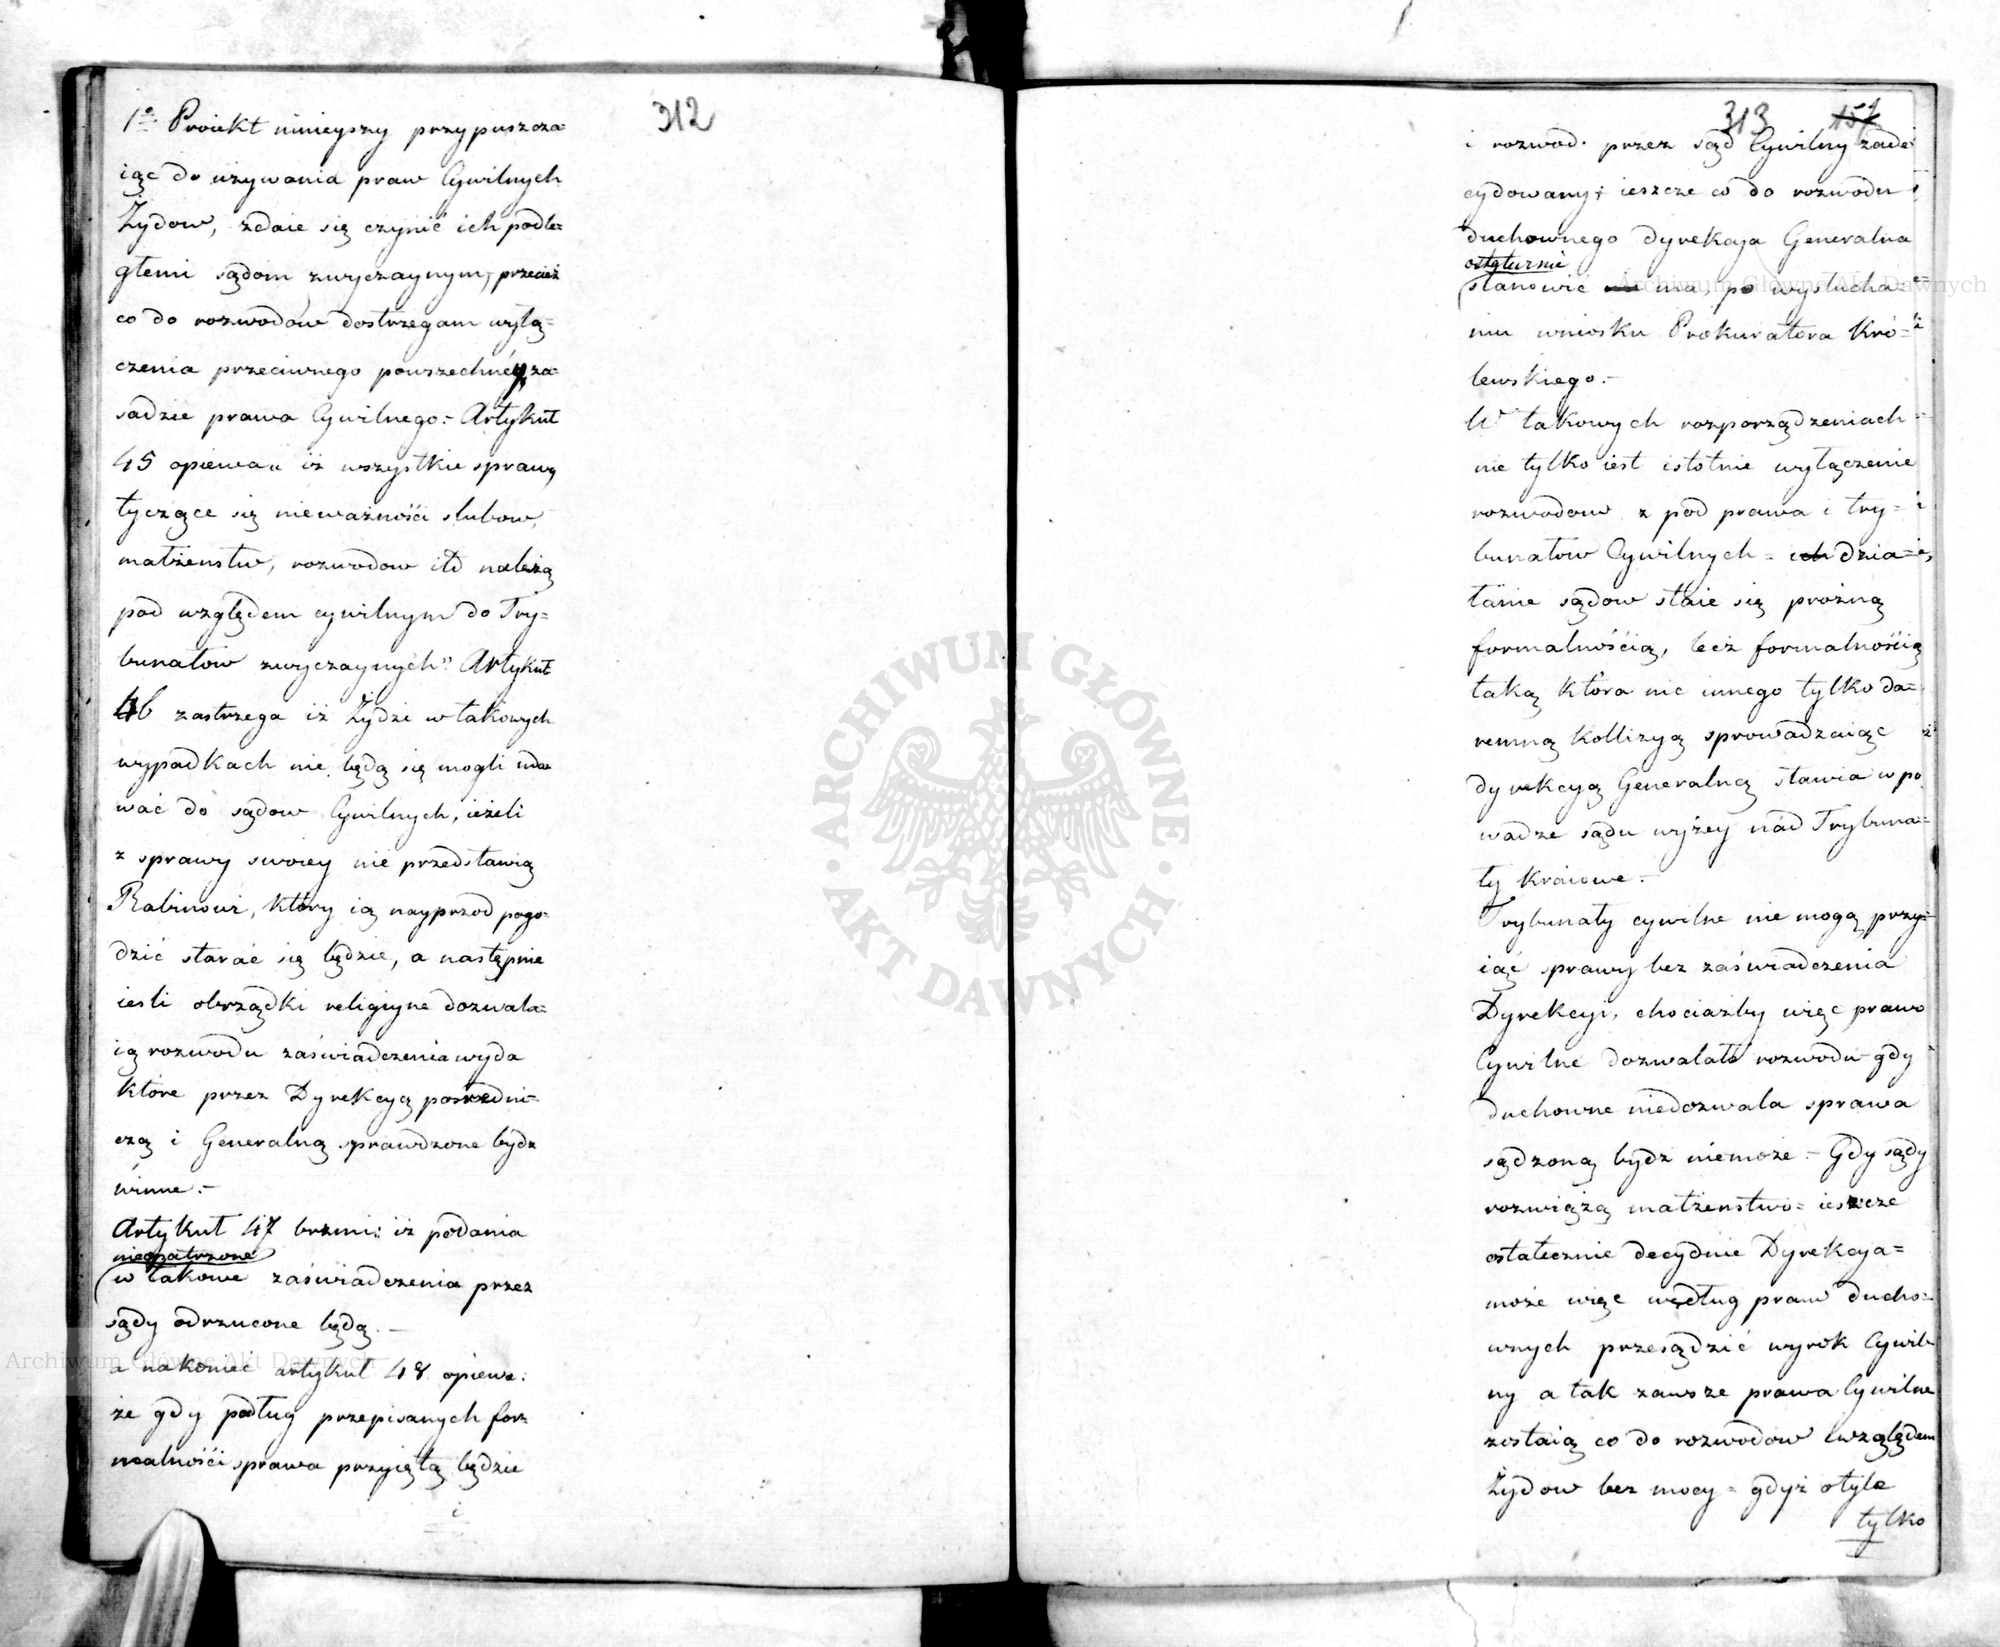 312
1o Proiekt ninieyszy przypuszcza=
iąc do używania praw Cywilnych
Żydow, zdaie się czynić ich podle=
głemi sądom zwyczaynym, przecież
co do rozwodów dostrzegam wyłą=
czenia przeciwnego powszechnéy za=
sadzie prawa Cywilnego.- Artykuł
45 opiewa „ iż wszystkie sprawy
tyczące się nieważnośći slubow,
małżenstw, rozwodow itd należą
pod względem cywilnym do Try=
bunałow zwyczaynych" Artykuł
46 zastrzega iż Żydzi w takowych
wypadkach nie będą się mogli uda
wać do sądow Cywilnych, ieżeli
z sprawy swoiey nie przedstawią
Rabinowi, który ią nayprzod pogo=
dzić starać się będzie, a następnie
iesli obrządki religiyne dozwala=
ią rozwodu zaświadczenia wyda
które przez Dyrekcyą posredni=
czą i Generalną sprawdzone bydz
winne.-
Artykuł 47 brzmi: iż podania
nieopatrzone
w takowe zaświadczenia przez
sądy odrzucone będą.-
a nakoniec artykuł 48 opiewa:
że gdy podług przepisanych for=
malnośći sprawa przyiętą będzie
i
313 157
i rozwod przez sąd Cywilny zade
cydowany; ieszcze co do rozwodu
duchownego Dyrekcya Generalna
stanowić ma, po wysłucha=
niu wniosku Prokuratora Kró=
lewskiego.-
W takowych rozporządzeniach
nie tylko iest istotnie wyłączenie
rozwodow z pod prawa i try=
bunałow Cywilnych - dzia=
łanie sądow staie się prożną
formalnośćią, lecz formalnośćią
taką która nic innego tylko da=
remną kollizyą sprowadzaiąc
dyrekcyą Generalną stawia w po
wadze sądu wyżey nád Trybuna=
ły Kraiowe.-
Trybunały cywilne nie mogą przy=
iąć sprawy bez zaświadczenia
Dyrekcyi, chociażby więc prawo
Cywilne dozwalało rozwodu - gdy
duchowne niedozwala sprawa
sądzoną bydz niemoże - Gdy sądy
rozwiążą małżenstwo - ieszcze
ostatecznie decyduie Dyrekcya=
może więc według praw ducho=
wnych przesądzić wyrok Cywil
ny a tak zawsze prawa Cywilne
zostaią co do rozwodow względem
Żydow bez mocy - gdyż o tyle
tylko
ARCHIWUM GŁÓWNE · AKT DAWNYCH ·
Archiwum Główne Akt Dawnych
Archiwum Główne Akt Dawnych